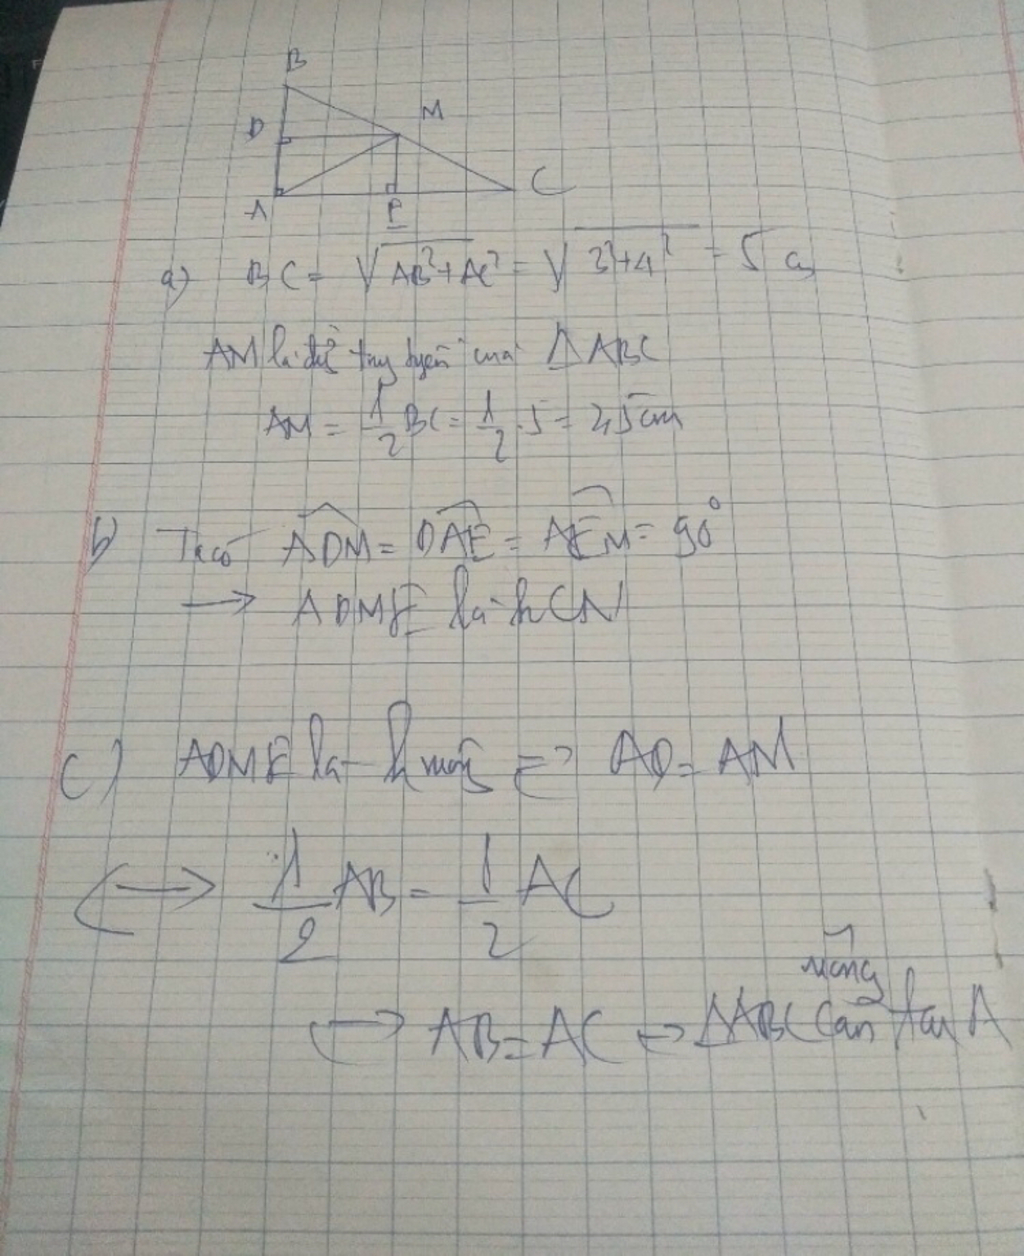 B
D
M
A
P
C
a) BC = √AB²+AC² = √3²+4² = 5 cm
AM là đg trung tuyến của Δ ABC
AM = 1/2 BC = 1/2 . 5 = 2,5 cm
b) Ta có ADM = DAE = AEM = 90°
→ ADME là hCN
c) ADME là h vuông => AD = AM
<=> 1/2 AB = 1/2 AC
vuông
<=> AB = AC <=> ΔABC cân tại A